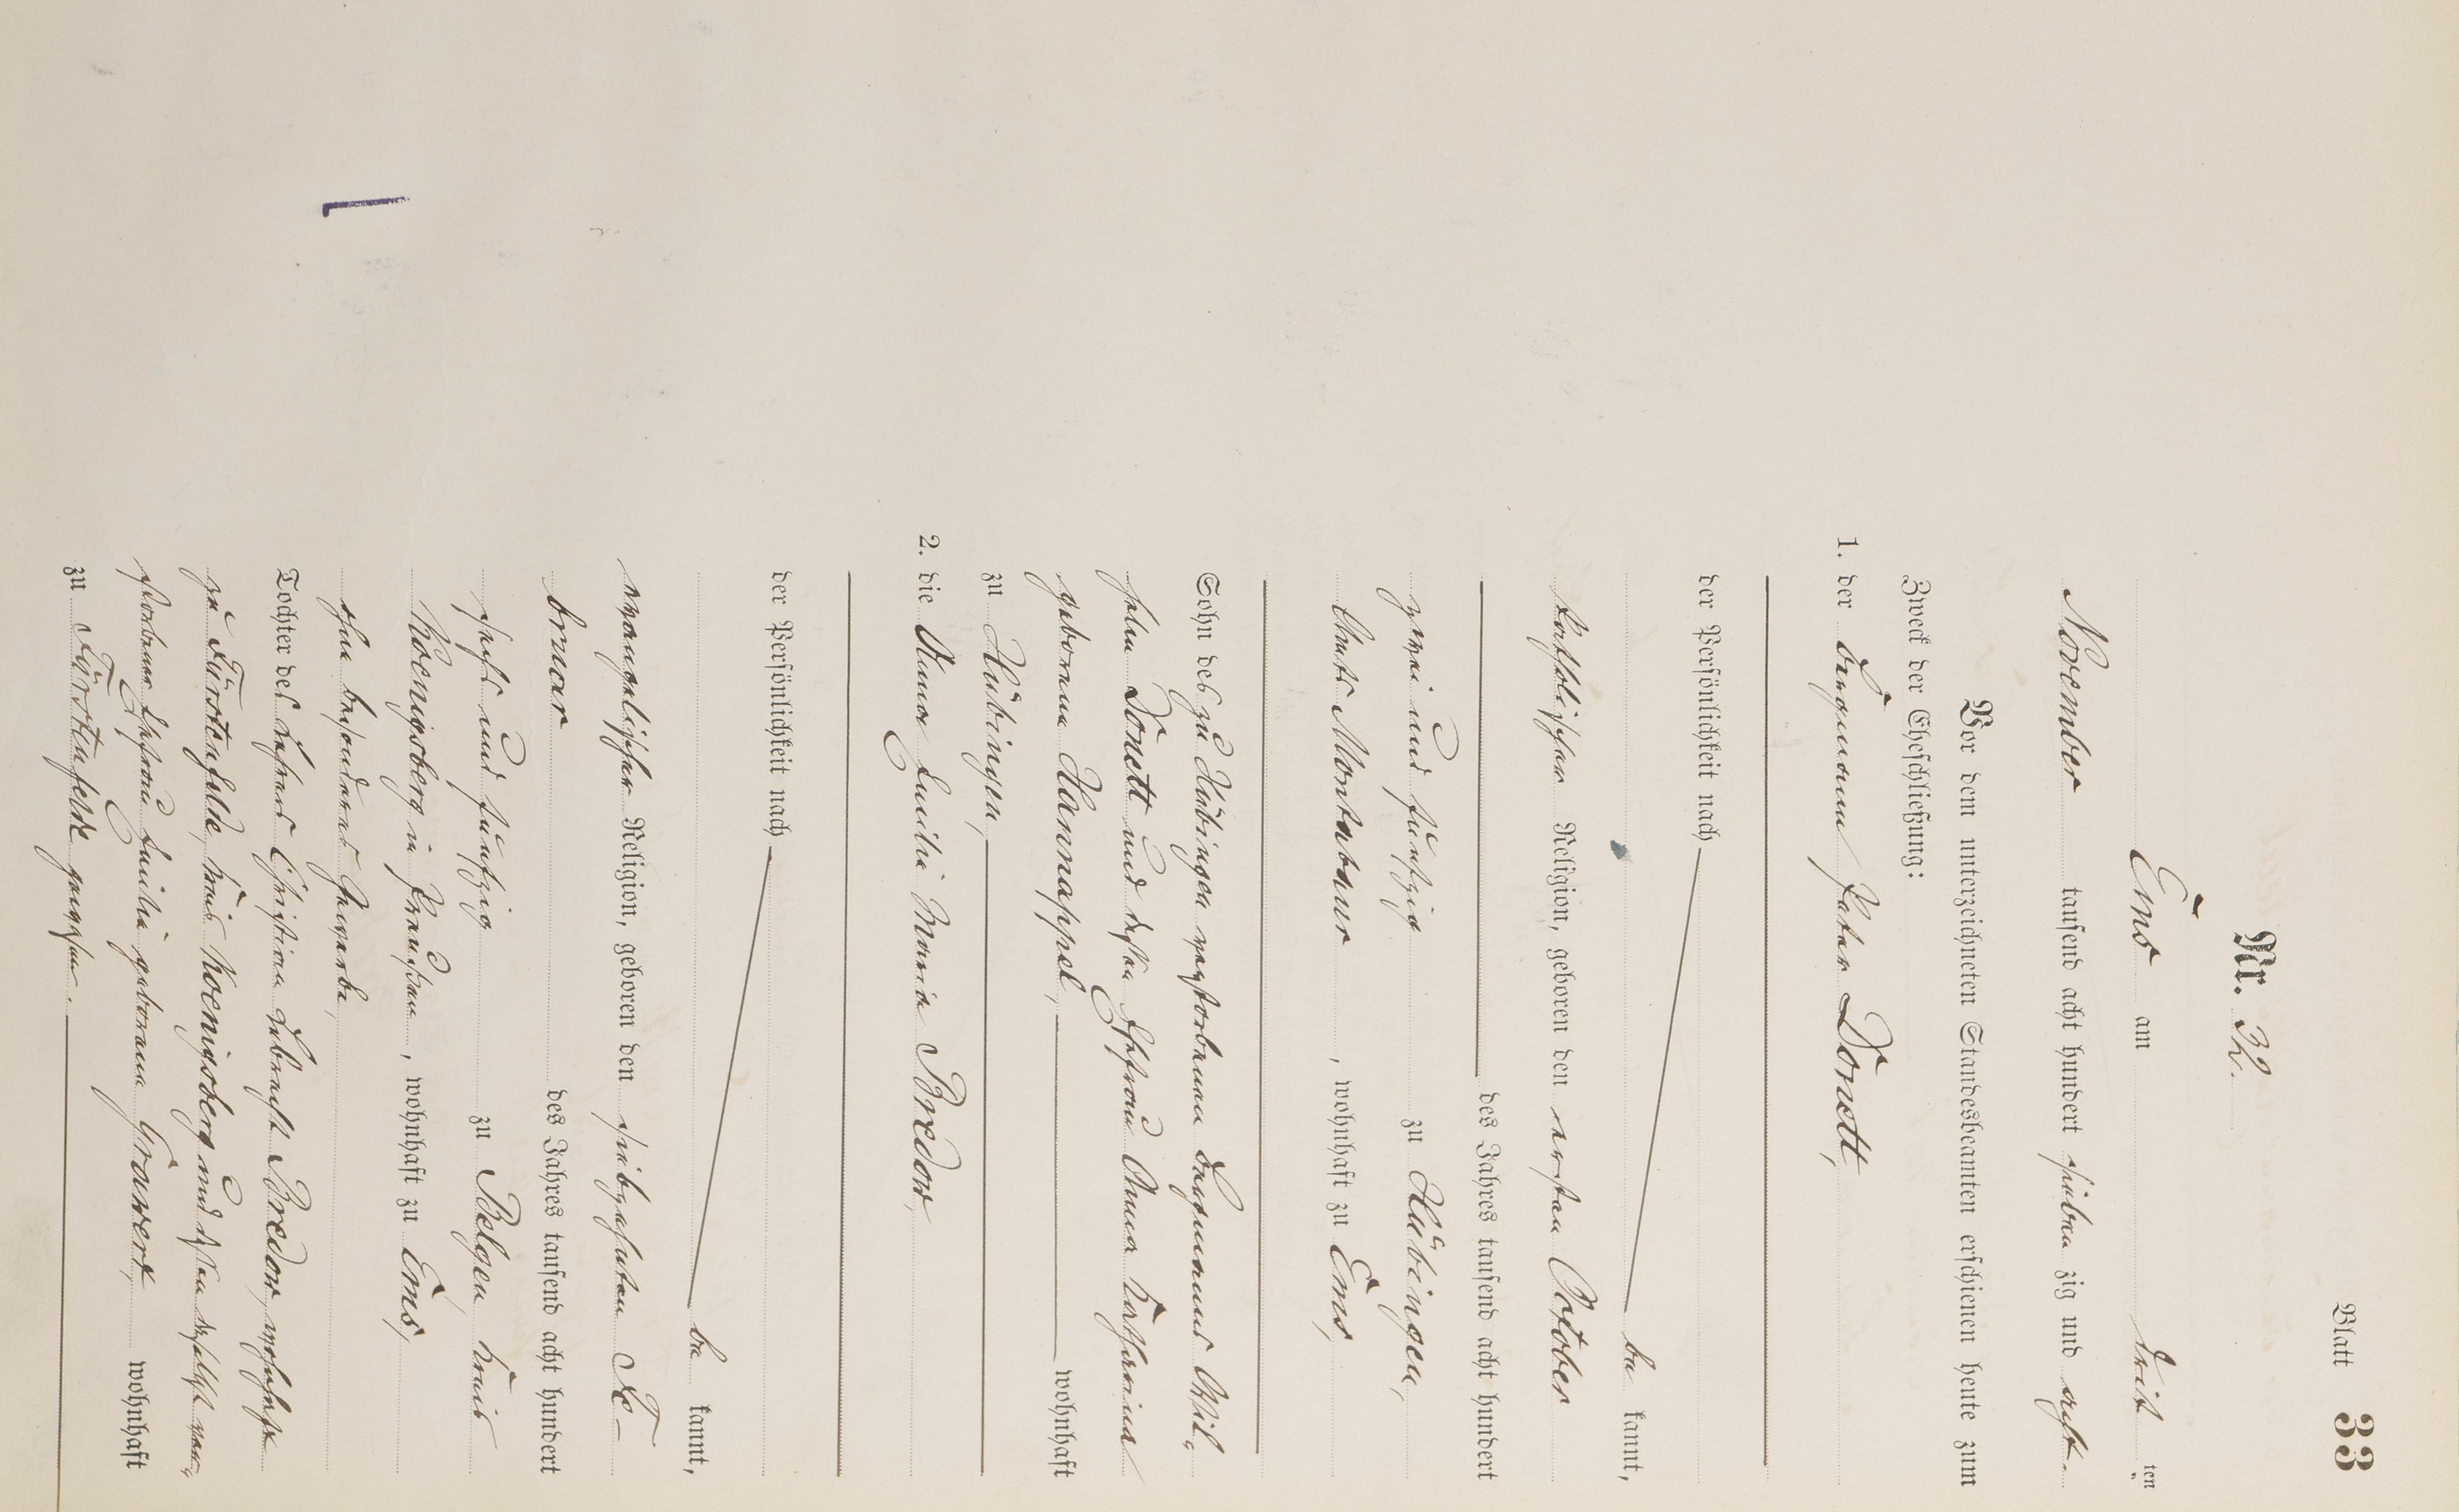 Blatt 33
Nr. 32.
Ems am drit ten
November tausend acht hundert sieben zig und acht.
Vor dem unterzeichneten Standesbeamten erschienen heute zum
Zweck der Eheschließung:
1. der Bergmann Peter Donett,
der Persönlichkeit nach
be kannt,
katholischer Religion, geboren den ersten October
des Jahres tausend acht hundert
zwei und fünfzig zu Hübingen,
Amts Montabaur, wohnhaft zu Ems,
Sohn des zu Hübingen verstorbenen Bergmanns Wil-
helm Donett und dessen Ehefrau Anna Katharina
geborene Hannappel, wohnhaft
zu Hübingen,
2. die Anna Emilie Maria Bredow,
der Persönlichkeit nach
be kannt,
evangelischer Religion, geboren den siebzehnten Fe-
bruar des Jahres tausend acht hundert
sechs und fünfzig zu Belgen, Kreis
Koenigsberg in Preußen, wohnhaft zu Ems,
ohne besonderes Gewerbe,
Tochter des Lehrers Christian Bredow, wohnhaft
zu Fürstenfelde, Kreis Koenigsberg und dessen daselbst ver-
storbener Ehefrau Emilie geborene Grawert, wohnhaft
zu Fürstenfelde gewesen.